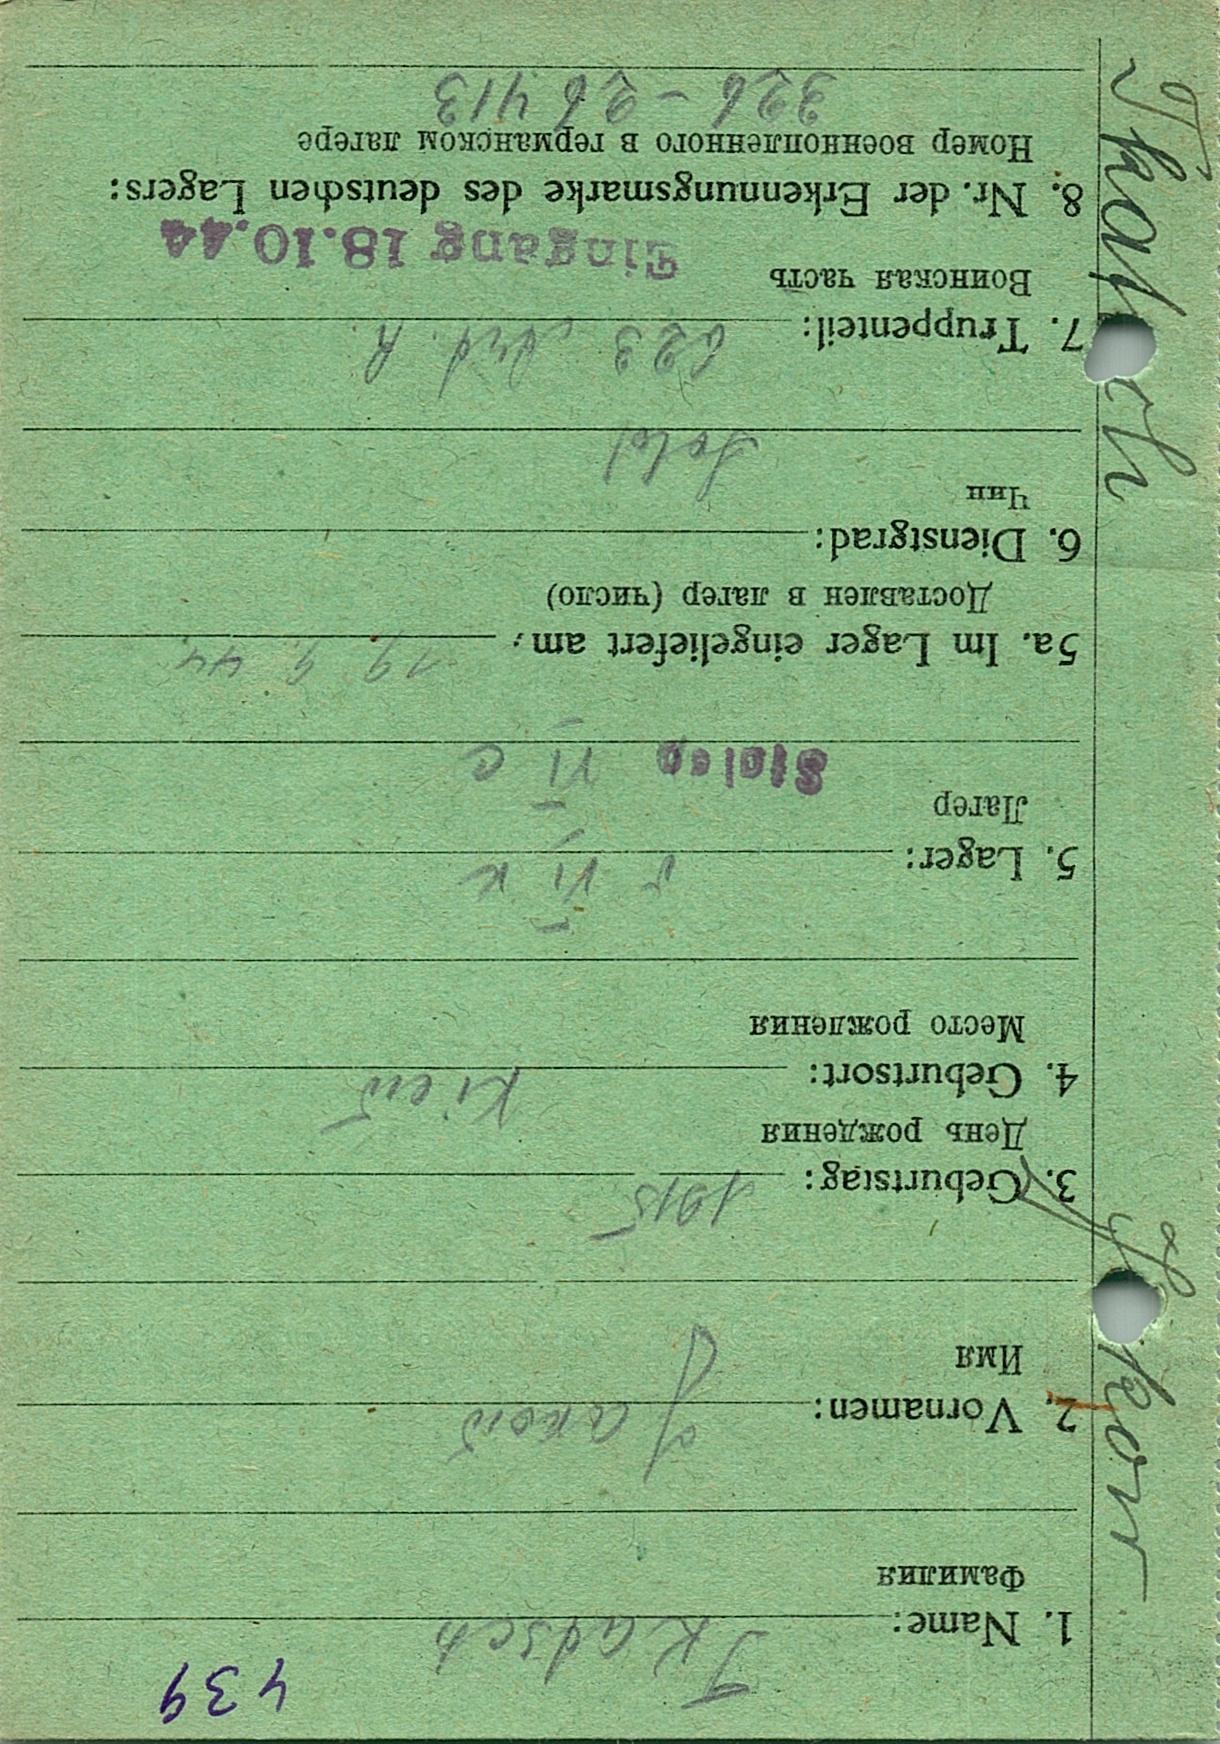 439
1. Name: Tkadsch
Фамилия
2. Vornamen: Jakow
Имя
3. Geburtstag: 1915
День рождения
4. Geburtsort: Kiew
Место рождения
5. Lager: VI K
Лагерь
Stalag VI C
5a. Im Lager eingeliefert am: 19 9. 44
Доставлен в лагерь (число)
6. Dienstgrad:
Чин
Sold
7. Truppenteil: 623
Воинская часть
Eingang 18.10.44
8. Nr. der Erkennungsmarke des deutschen Lagers:
Номер военнопленного в германском лагере
326 - 26413